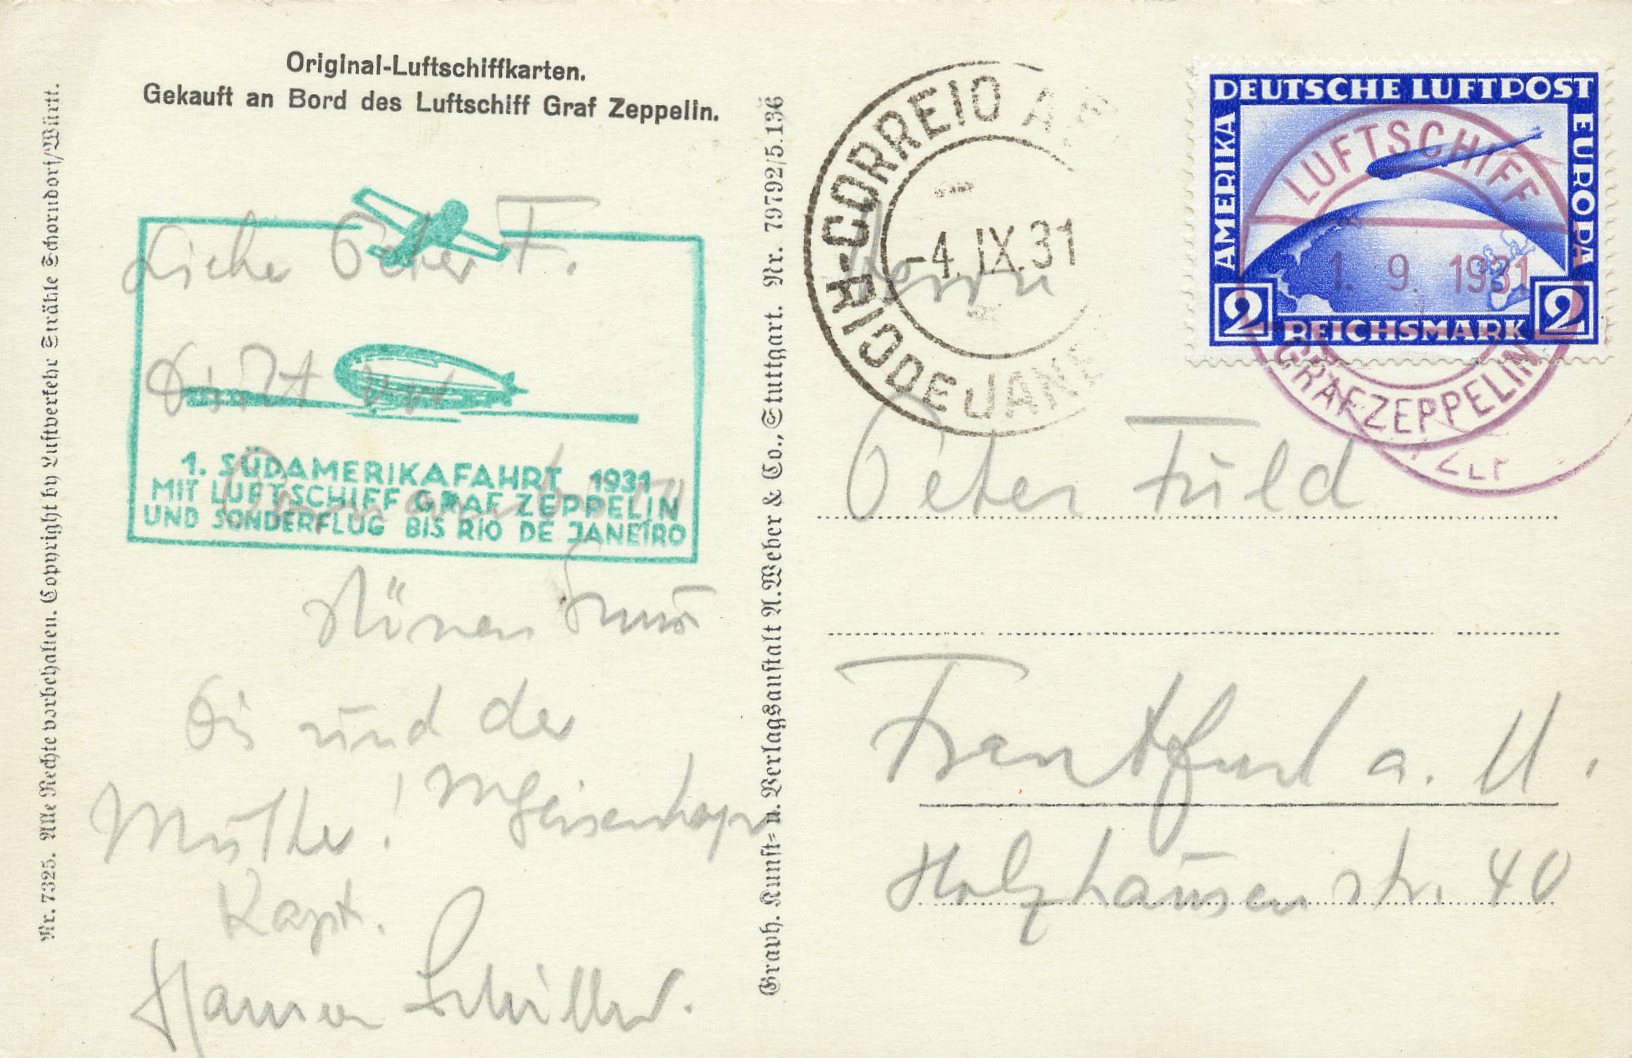 Original-Luftschiffkarten.
Gekauft an Bord des Luftschiff Graf Zeppelin.
Nr. 7325. Alle Rechte vorbehalten. Copyright by Luftverkehr Strähle Schorndorf/Württ.
Lieber Peter F.
1. SÜDAMERIKAFAHRT 1931
MIT LUFTSCHIFF GRAF ZEPPELIN
UND SONDERFLUG BIS RIO DE JANEIRO
schönen Gruss
Dir und der
Mutter!
Kapt.
Hans von Schiller.
Graph. Kunst- u. Verlagsanstalt A. Weber & Co., Stuttgart. Nr. 79792/5.136
CORREIO AE
-4.IX.31
RIO DE JANE
DEUTSCHE LUFTPOST
AMERIKA
EUROPA
2 REICHSMARK 2
LUFTSCHIFF
1. 9. 1931
GRAF ZEPPELIN
Herrn
Peter Fuld
Frankfurt a. M.
Holzhausenstr. 40